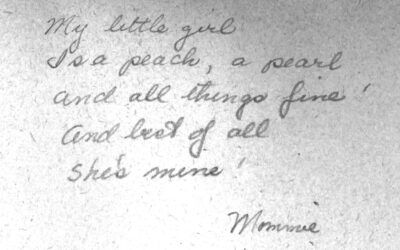 My little girl
Is a peach, a pearl
and all things fine!
And best of all
She's mine!
Mommie